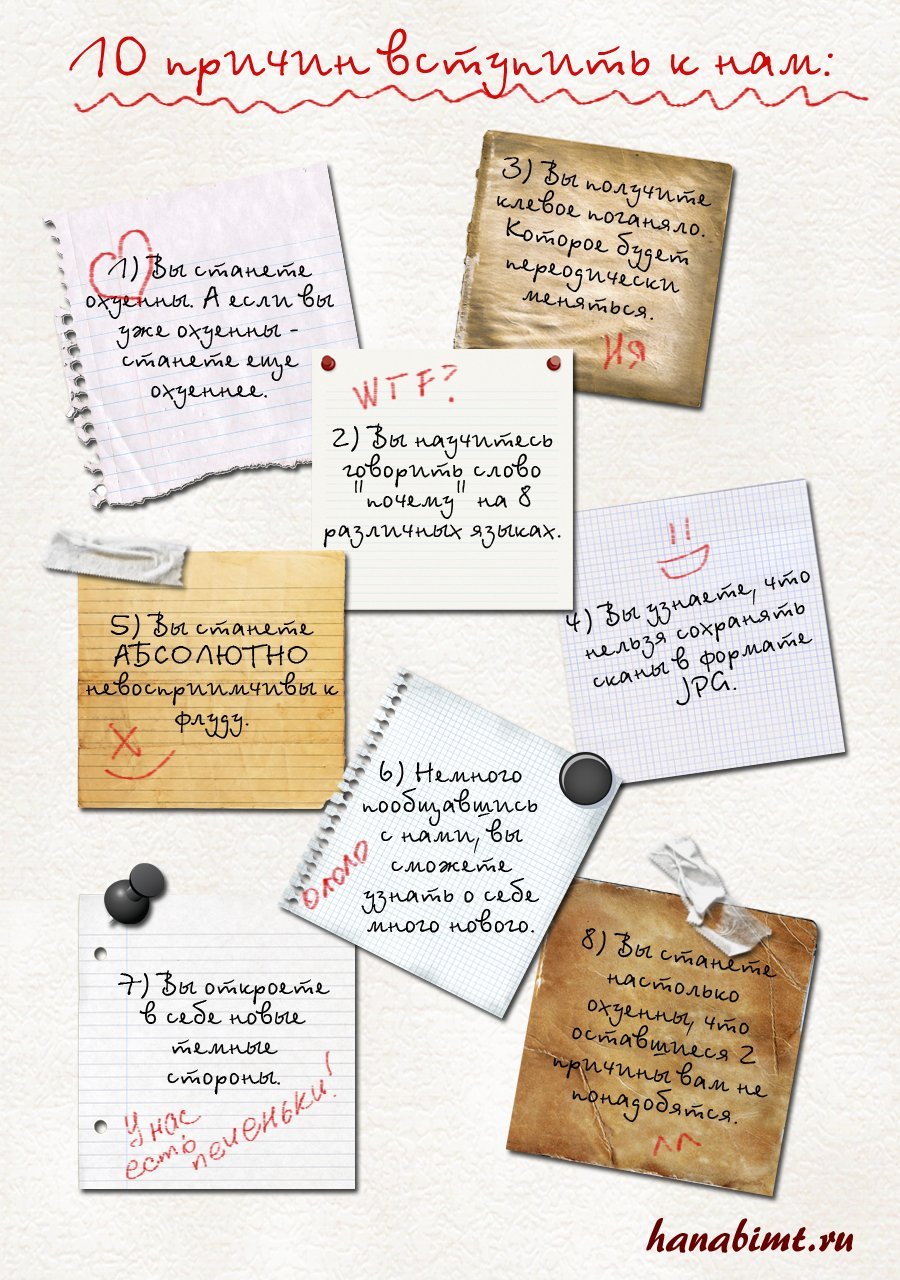 10 причин вступить к нам:
1) Вы станете
охуенны. А если вы
уже охуенны -
станете еще
охуеннее.
WTF?
2) Вы научитесь
говорить слово
"почему" на 8
различных языках.
3) Вы получите
клевое поганяло.
Которое будет
переодически
меняться.
Ия
4) Вы узнаете, что
нельзя сохранять
сканы в формате
JPG.
5) Вы станете
АБСОЛЮТНО
невосприимчивы к
флуду.
6) Немного
пообщавшись
с нами, вы
сможете
узнать о себе
много нового.
ололо
7) Вы откроете
в себе новые
темные
стороны.
У нас
есть печеньки!
8) Вы станете
настолько
охуенны, что
оставшиеся 2
причины вам не
понадобятся.
hanabimt.ru